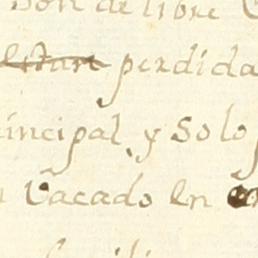 son de libre
estan perdida
incipal, y solo
vacado en